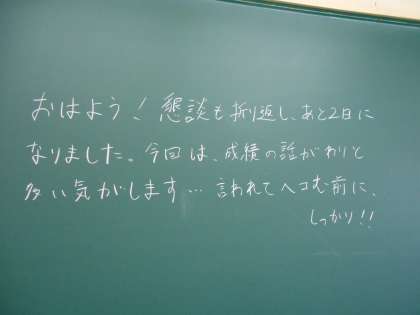 おはよう！懇談も折り返し、あと2日に
なりました。今回は、成績の話がわりと
多い気がします… 言われてヘコむ前に、
しっかり!!